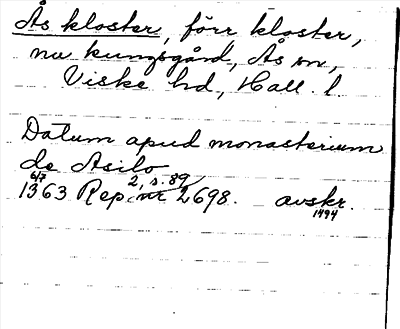 Ås kloster, förr kloster,
nu kungsgård, Ås sn,
Viske hd, Hall. l.
Datum apud monasterium
de Asilo
6/7 2, s. 89
1363 Rep. nr 2698. avskr.
1494